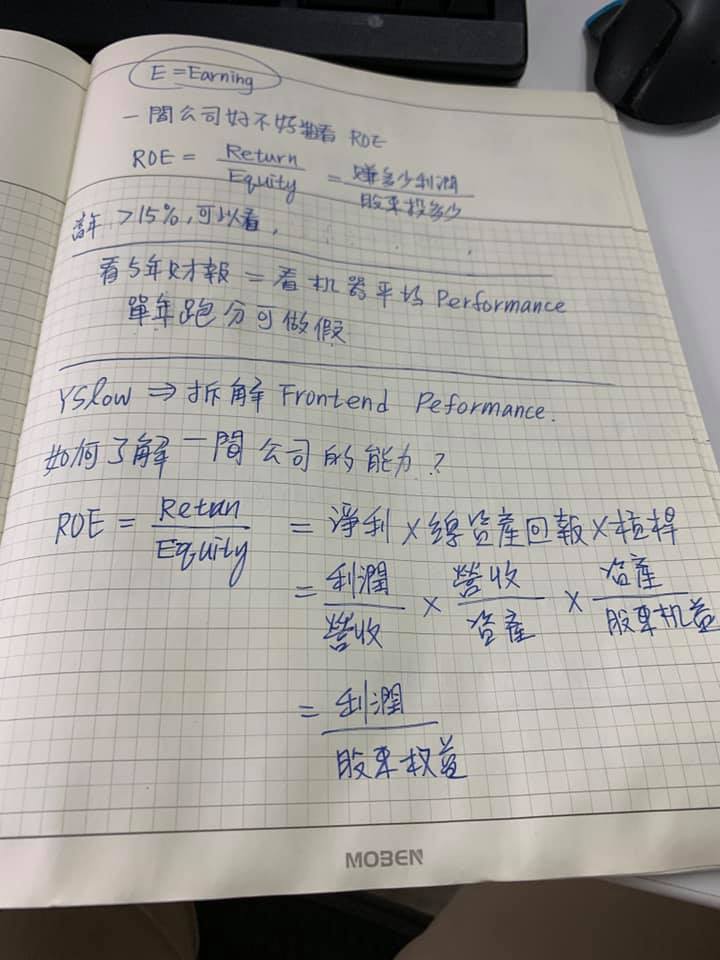 E = Earning
一間公司好不好看 ROE
ROE = Return / Equity = 賺多少利潤 / 股東投多少
年 >15%, 可以看,
看5年財報 = 看机器平均 Performance
單年跑分可做假
YSlow ⇒ 拆解 Frontend Peformance.
如何了解一間公司的能力?
ROE = Retun / Equity = 淨利 × 總資產回報 × 槓桿
= 利潤 / 營收 × 營收 / 資產 × 資產 / 股東权益
= 利潤 / 股東权益
MOBEN